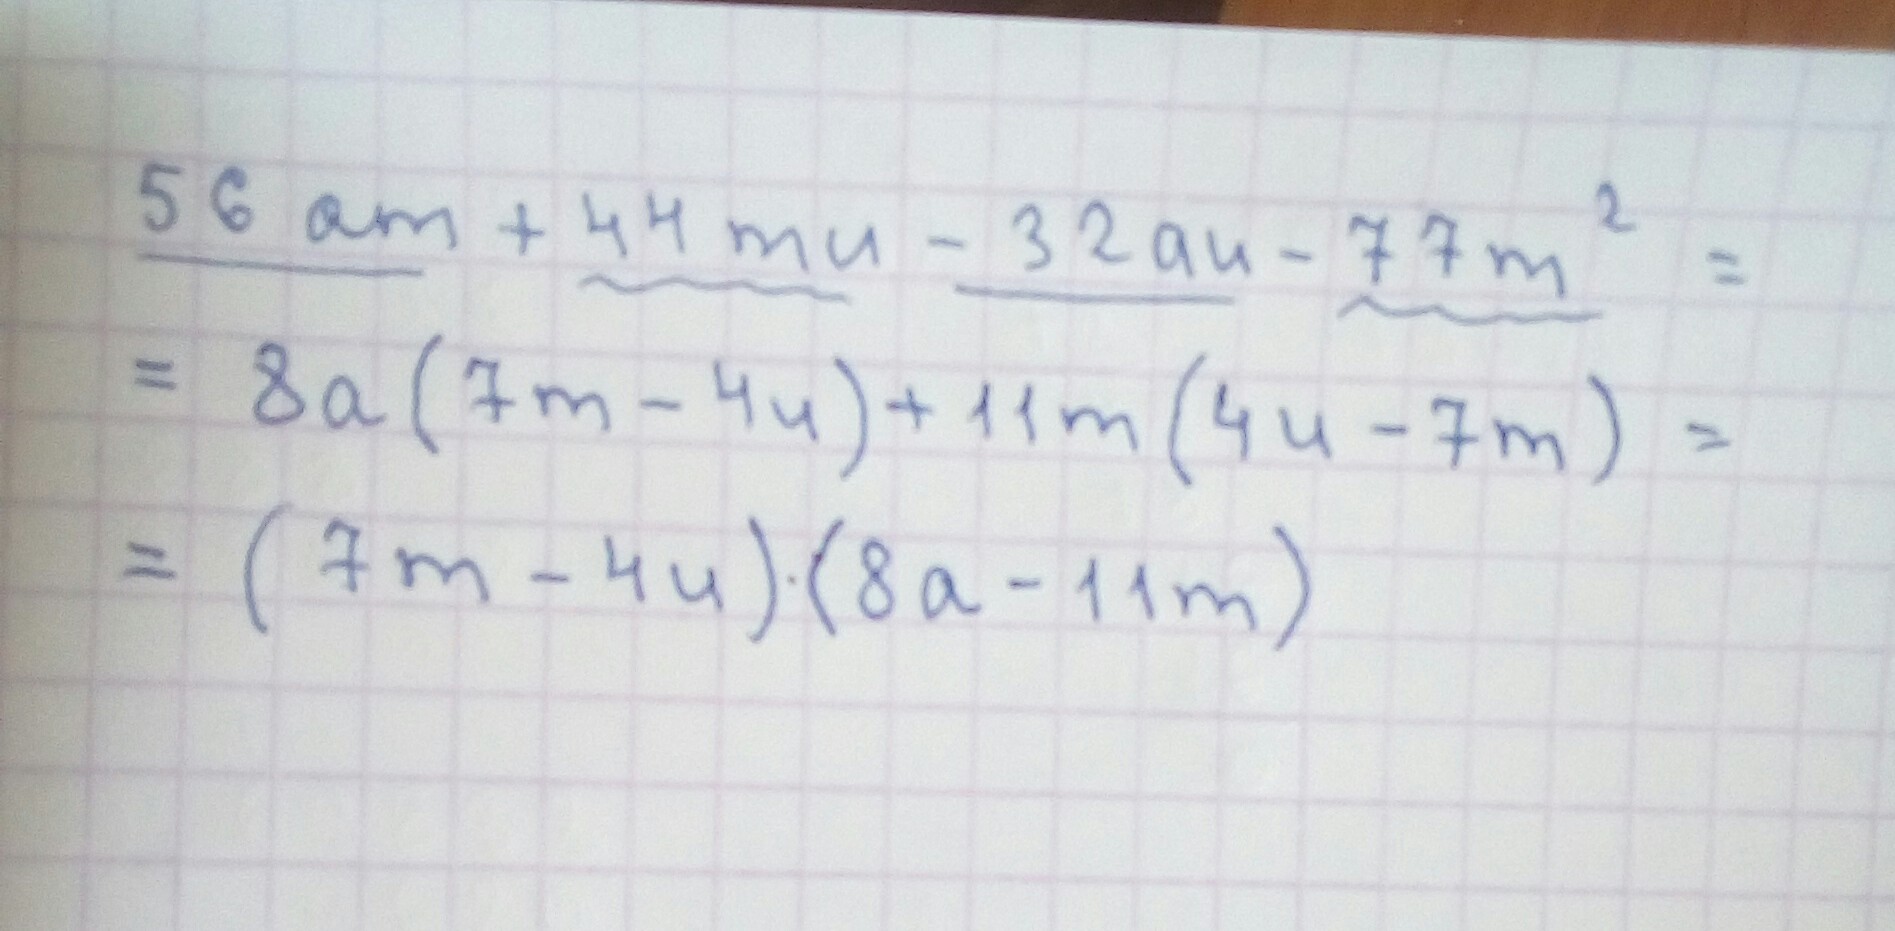 56 am + 44 mu - 32au - 77m² =
= 8a(7m - 4u) + 11m(4u - 7m) =
= (7m - 4u)·(8a - 11m)